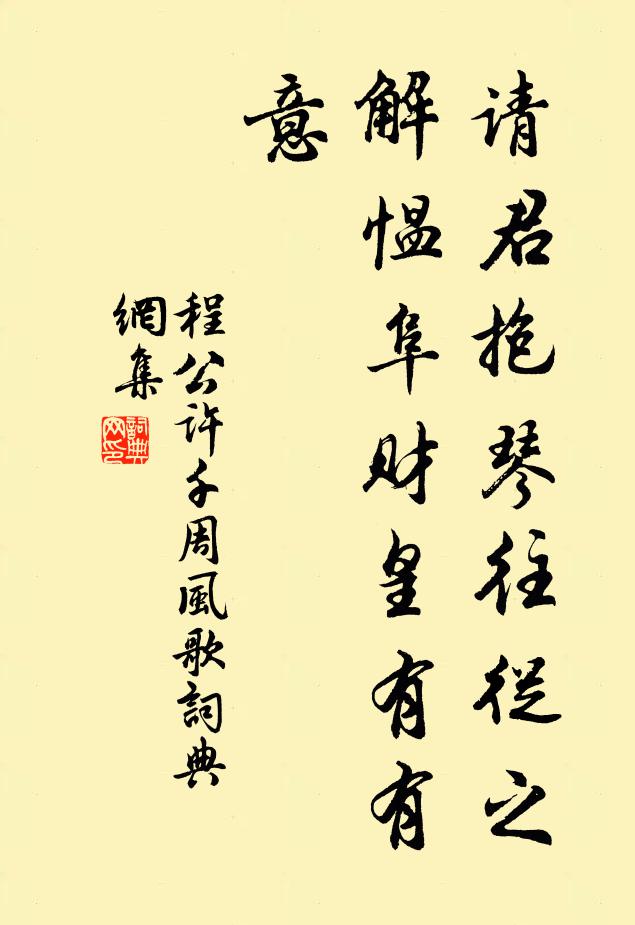 请君抱琴往從之
解愠阜财皇有有
意
程公許千周風歌詞典
網集
詞典網印